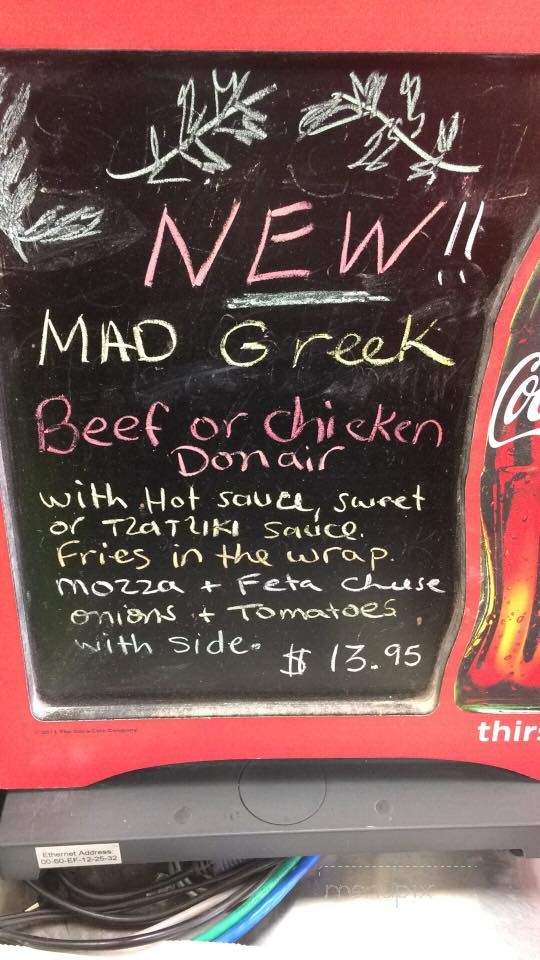 NEW!!
MAD Greek
Beef or chicken
Donair
with Hot sauce, sweet
or TzaTziki sauce.
Fries in the wrap.
mozza + Feta cheese
onions + Tomatoes
with side. $13.95
Co
thir
© 2011 The Coca-Cola Company
Ethernet Address:
00-60-EF-12-25-32
menupix